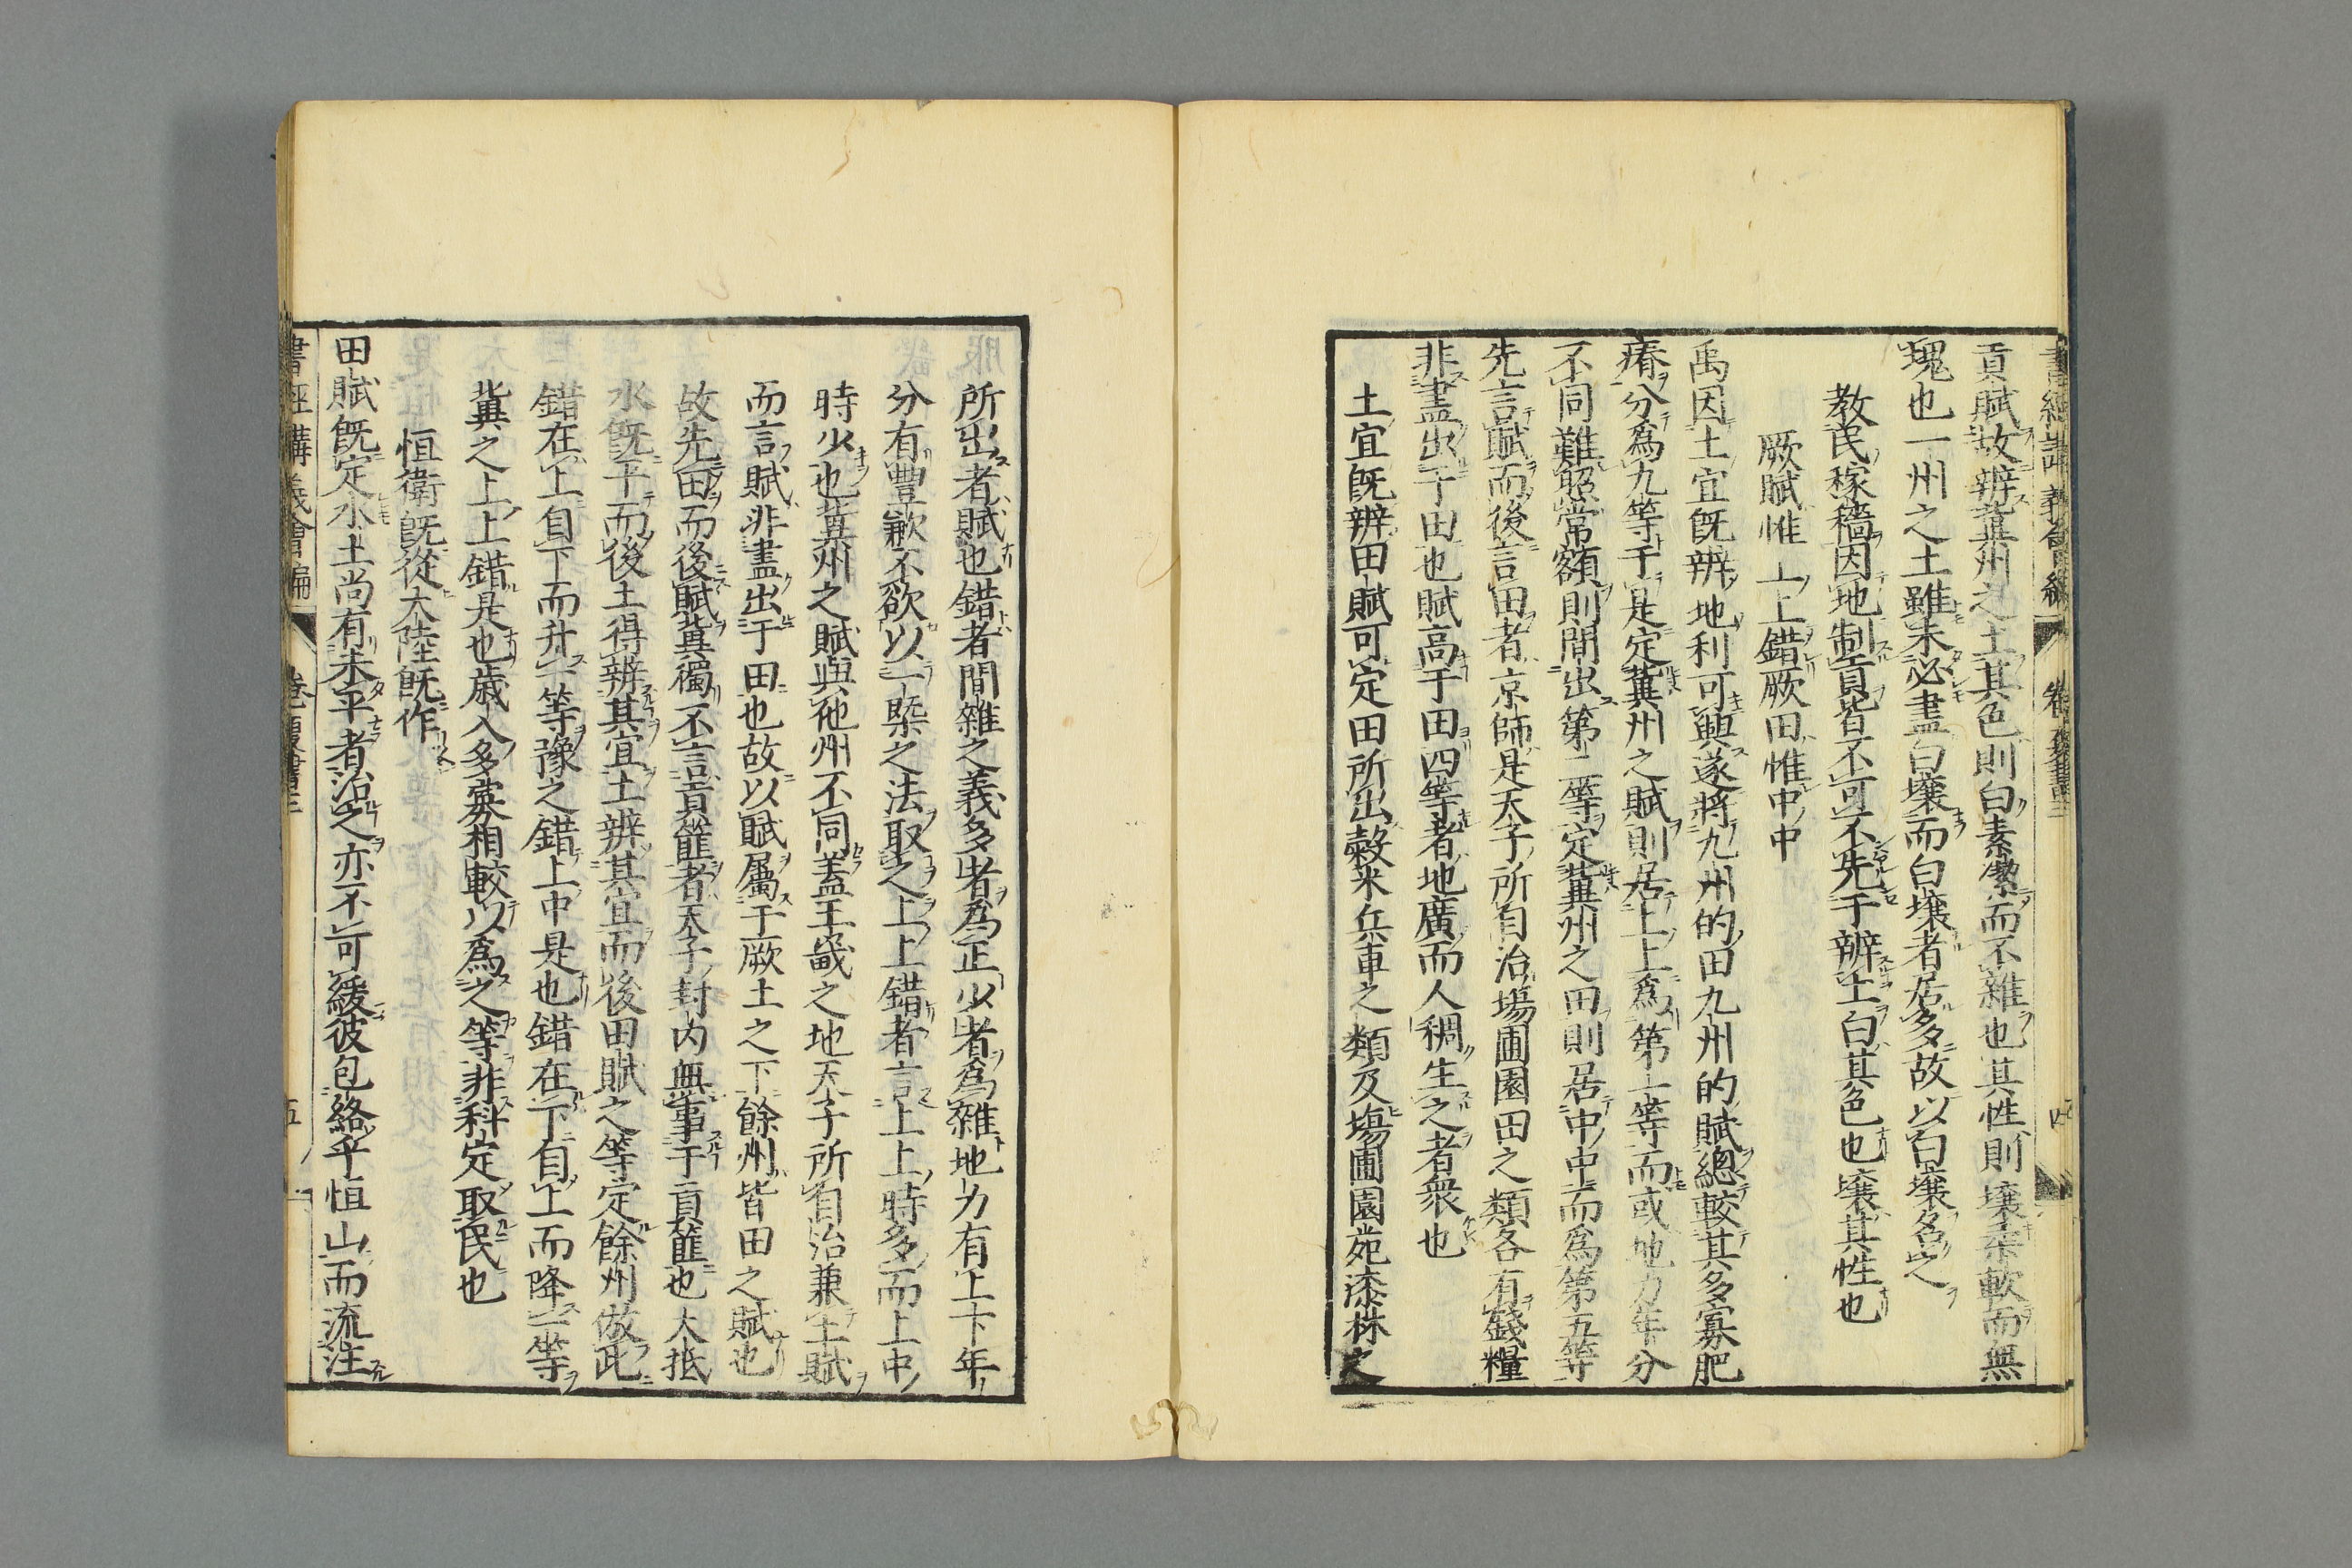 書經講義會編
四
貢賦故辨冀州之土其色則白素潔而不雜也其性則壤柔軟而無
塊也一州之土雖未必盡白壤而白壤者居多故以白壤名之
教民稼穡因地制貢皆不可不先于辨土白其色也壤其性也
厥賦惟上上錯厥田惟中中
禹因土宜既辨地利可興遂將九州的田九州的賦總較其多寡肥
瘠分爲九等于是定冀州之賦則居上上爲第一等而或地力年分
不同難照常額則間出第二等定冀州之田則居中中而爲第五等
先言賦而後言田者京師是天子所自治塲圃園田之類各有錢糧
非盡出于田也賦高于田四等者地廣而人稠生之者衆也
土宜既辨田賦可定田所出穀米兵車之類及塲圃園苑漆林之
所出者賦也錯者間雜之義多者爲正少者爲雜地力有上下年
分有豐歉不欲以一槩之法取之上上錯者言上上時多而上中
時少也冀州之賦與他州不同蓋王畿之地天子所自治兼土賦
而言賦非盡出于田也故以賦屬于厥土之下餘州皆田之賦也
故先田而後賦冀獨不言貢篚者天子封内無事于貢篚也大抵
水既平而後土得辨其宜土辨其宜而後田賦之等定餘州倣此
錯在上自下而升一等豫之錯上中是也錯在下自上而降一等
冀之上上錯是也歲入多寡相較以爲之等非科定取民也
恒衛既從大陸既作
田賦既定水土尚有未平者治之亦不可緩彼包絡乎恒山而流注
書經講義會編
五